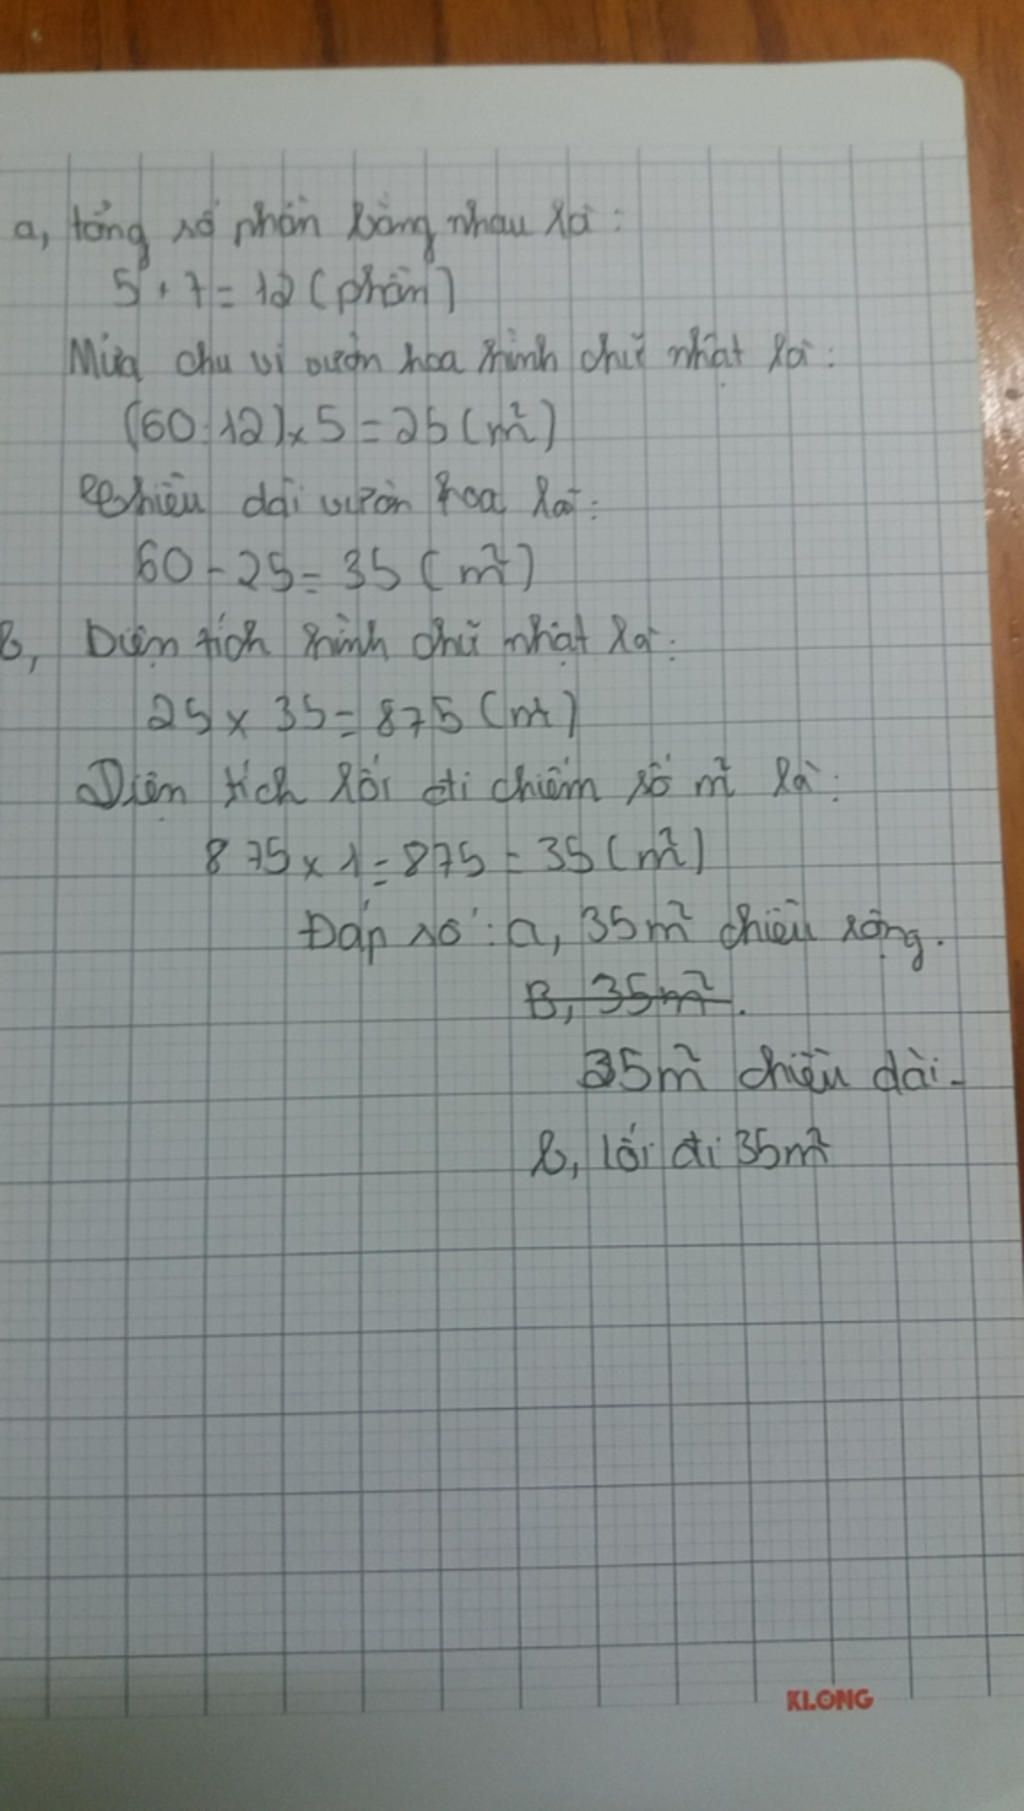 a, tổng số phần bằng nhau là:
5 + 7 = 12 (phần)
Nửa chu vi vườn hoa hình chữ nhật là:
(60:12) x 5 = 25 (m²)
Chiều dài vườn hoa là:
60 - 25 = 35 (m²)
B, Diện tích hình chữ nhật là:
25 x 35 = 875 (m²)
Diện tích lối đi chiếm số m² là:
875 x 1 = 875 = 35 (m²)
Đáp số: a, 35m² chiều rộng.
B, 35m².
35m² chiều dài.
b, lối đi 35m²
KLONG